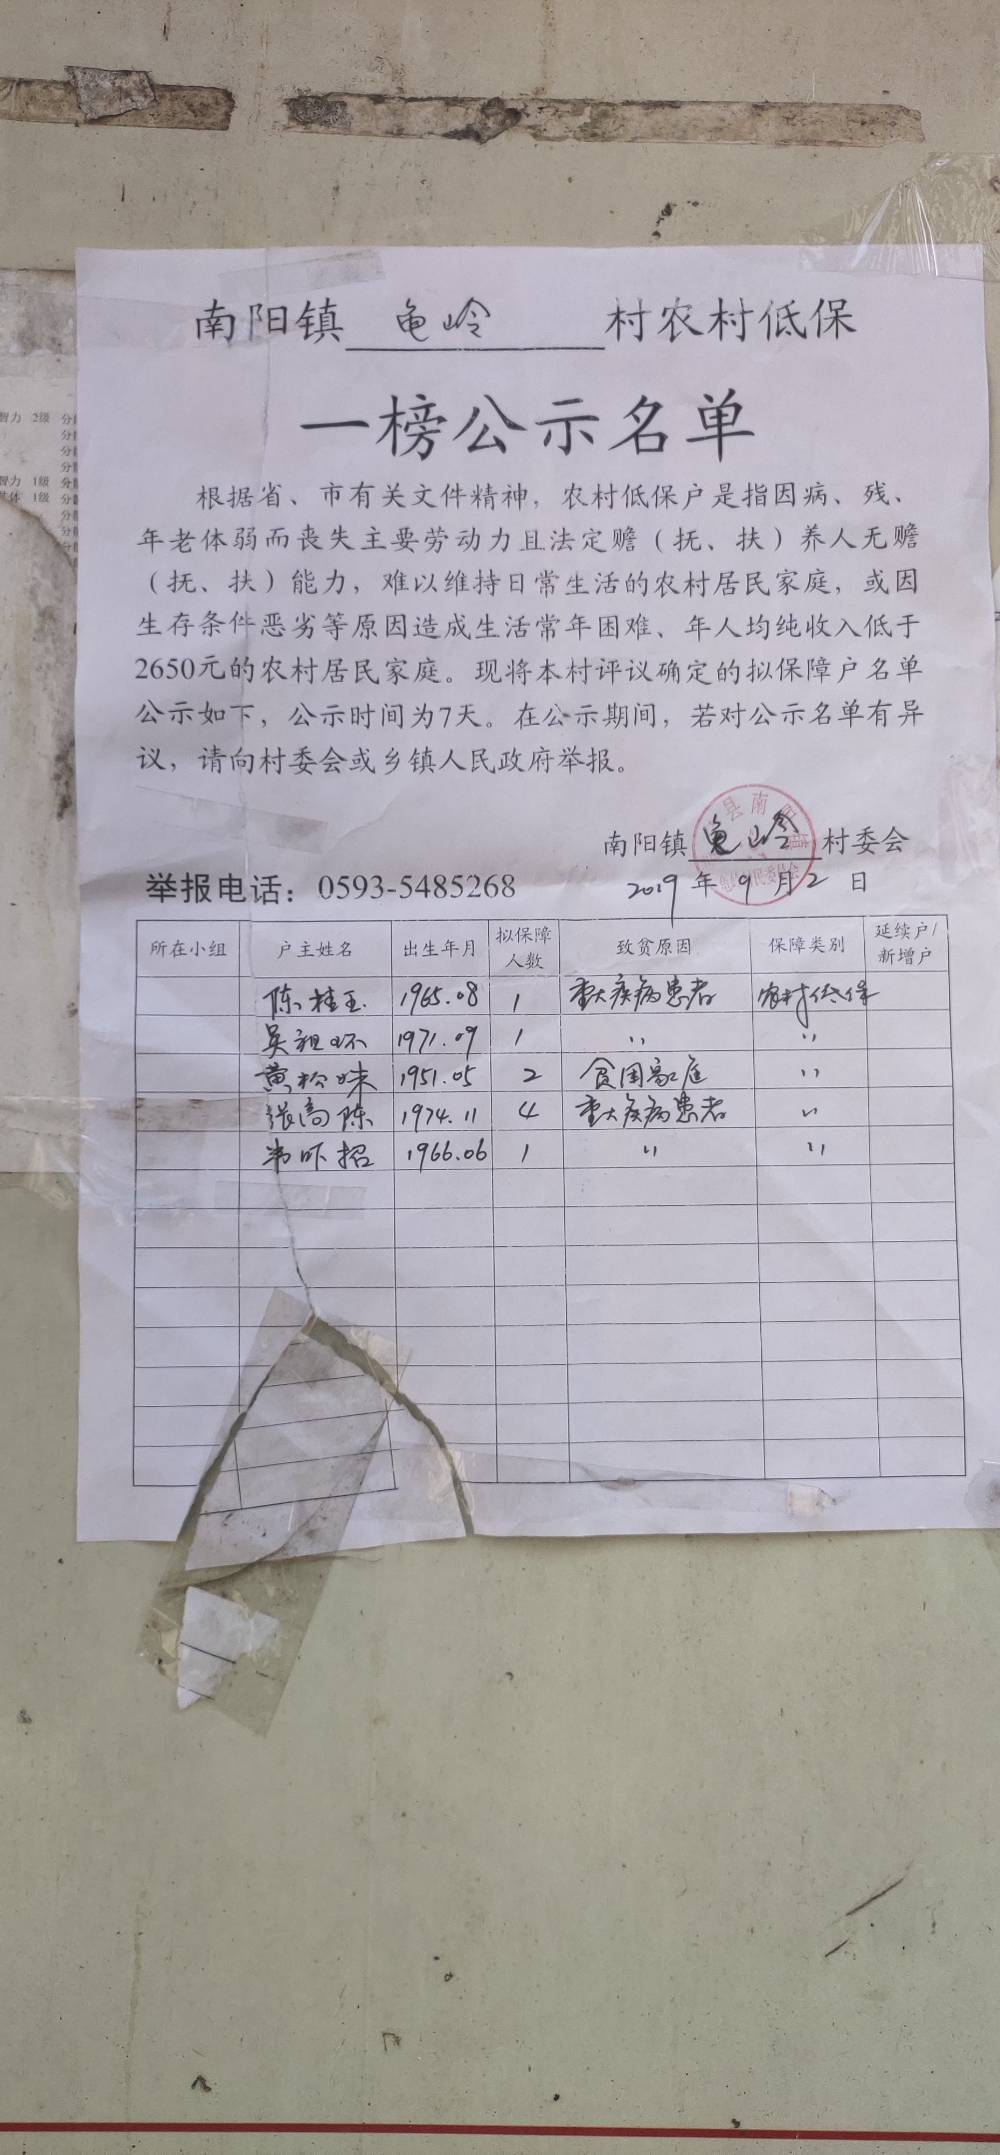 南阳镇 龟岭 村农村低保
一榜公示名单
根据省、市有关文件精神，农村低保户是指因病、残、
年老体弱而丧失主要劳动力且法定赡（抚、扶）养人无赡
（抚、扶）能力，难以维持日常生活的农村居民家庭，或因
生存条件恶劣等原因造成生活常年困难、年人均纯收入低于
2650元的农村居民家庭。现将本村评议确定的拟保障户名单
公示如下，公示时间为7天。在公示期间，若对公示名单有异
议，请向村委会或乡镇人民政府举报。
南阳镇 龟岭 村委会
举报电话：0593-5485268
2019 年 9 月 2 日
所在小组 户主姓名 出生年月 拟保障人数 致贫原因 保障类别 延续户/新增户
陈桂玉 1965.08 1 重大疾病患者 农村低保
吴祖环 1971.09 1 〃 〃
黄松妹 1951.05 2 贫困家庭 〃
张高陈 1974.11 4 重大疾病患者 〃
1966.06 1 〃 〃
智力 2级
智力 1级
1级